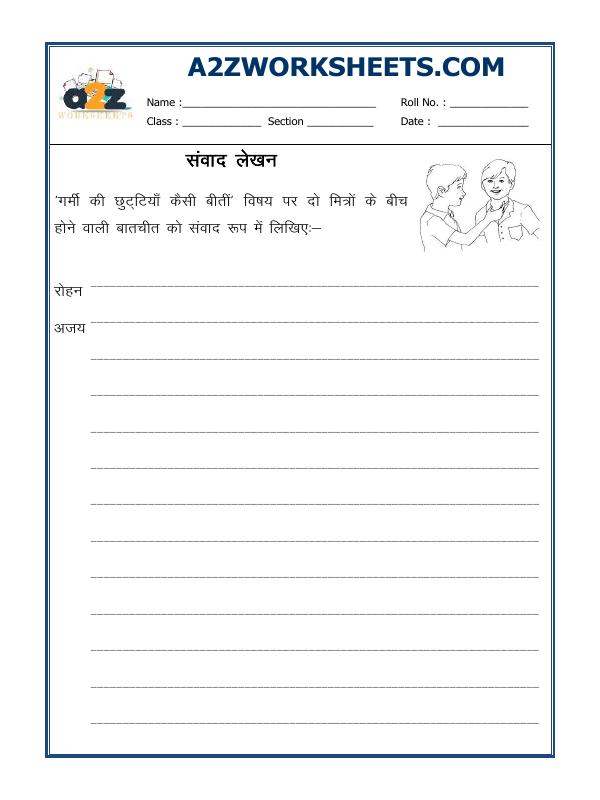 A2ZWORKSHEETS.COM
a2z
WORKSHEETS
Name :
Roll No. :
Class :
Section
Date :
संवाद लेखन
'गर्मी की छुट्टियाँ कैसी बीतीं' विषय पर दो मित्रों के बीच
होने वाली बातचीत को संवाद रूप में लिखिए:–
रोहन
अजय